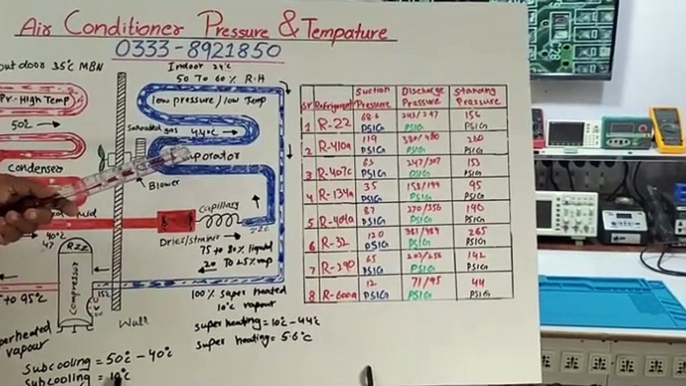 Air Conditioner Pressure & Tempature
0333-8921850
out door 35°c MBN
Indoor 24°c
50 To 60% R.H
Pr. High Temp
low pressure / low Temp
50%
Saturated gas 4.4°c
condenser
Blower
Capillary
Drier/strainer
75 to 80% liquid
20 To 25% vap
40°C
R22
compressor
to 95°C
100% Saper heated
10°c vapour
Wall
super heating = 10°c - 4.4°c
super heating = 5.6°c
perheated
vapour
Subcooling = 50°c - 40°c
Subcooling = 10°c
Sr Refrigerant Suction Pressure Discharge Pressure Standing Pressure
1 R-22 68.6 PSIG 243/297 PSIG 156 PSIG
2 R-410a 119 PSIG PSIG 260 PSIG
3 R-407c 63 PSIG 247/307 PSIG 153 PSIG
4 R-134a 35 PSIG 158/199 PSIG 95 PSIG
5 R-404a 87 PSIG 270/356 PSIG 190 PSIG
6 R-32 120 PSIG PSIG 265 PSIG
7 R-290 65 PSIG PSIG 142 PSIG
8 R-600a 12 PSIG 71/95 PSIG 44 PSIG